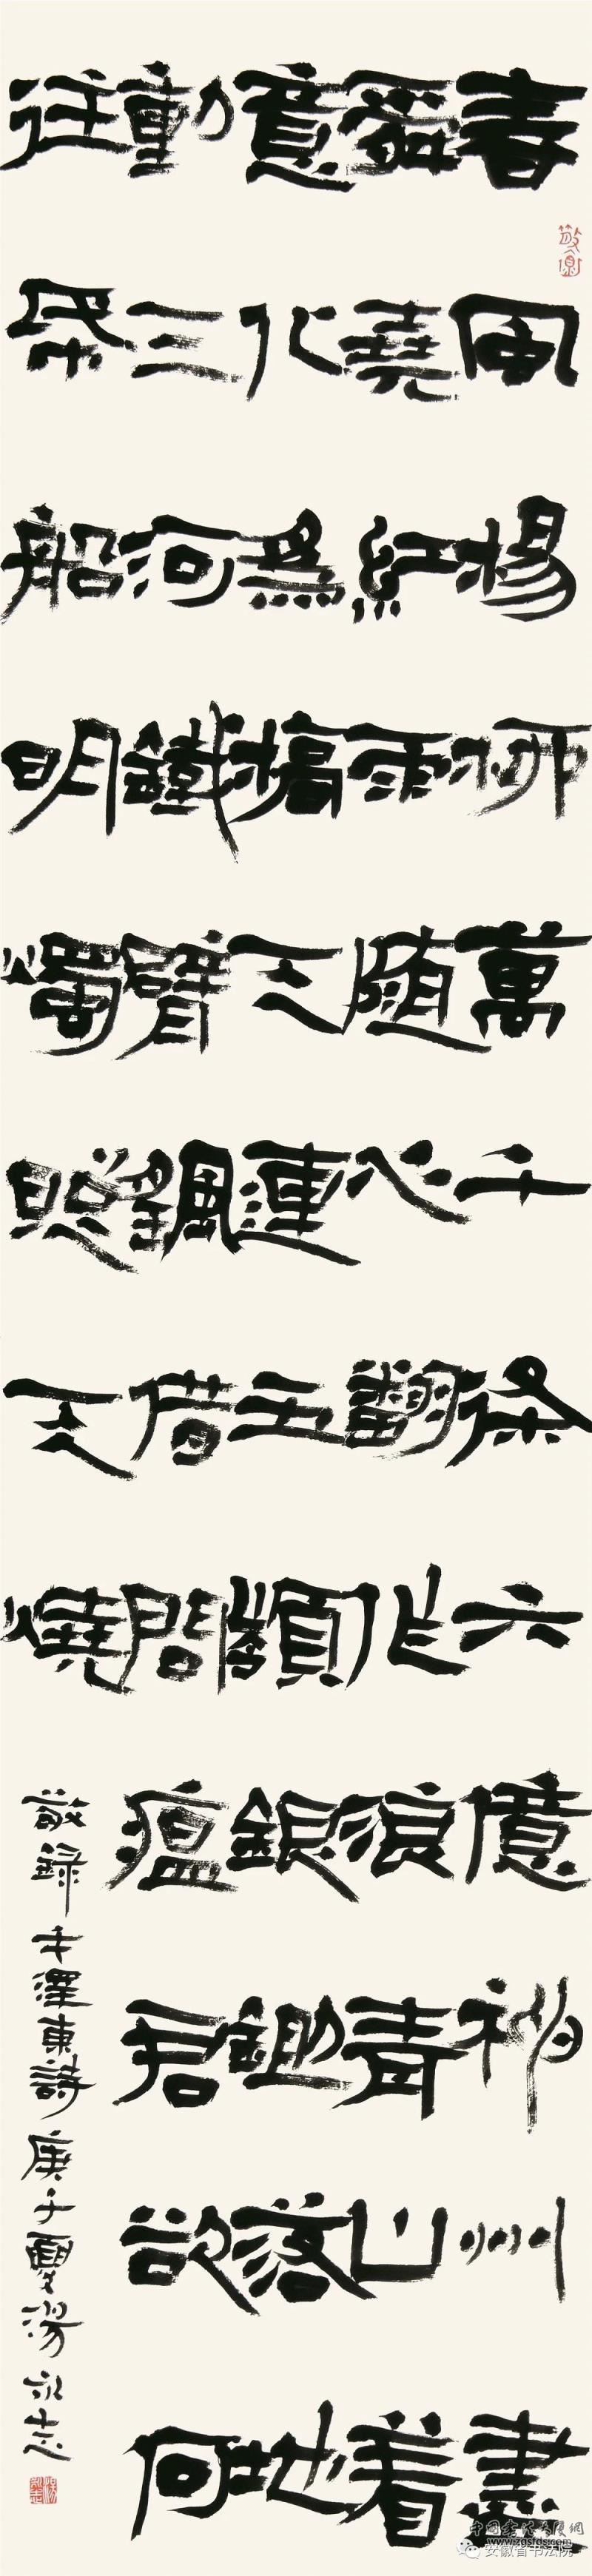 春風楊柳萬千條六億神州盡
舜堯紅雨随心翻作浪青山着
意化為橋天連五嶺銀鋤落地
動三河鐵臂搖借問瘟君欲何
往帋船明燭照天燒
敬録毛澤東詩庚子夏湯永志
安徽省书法院